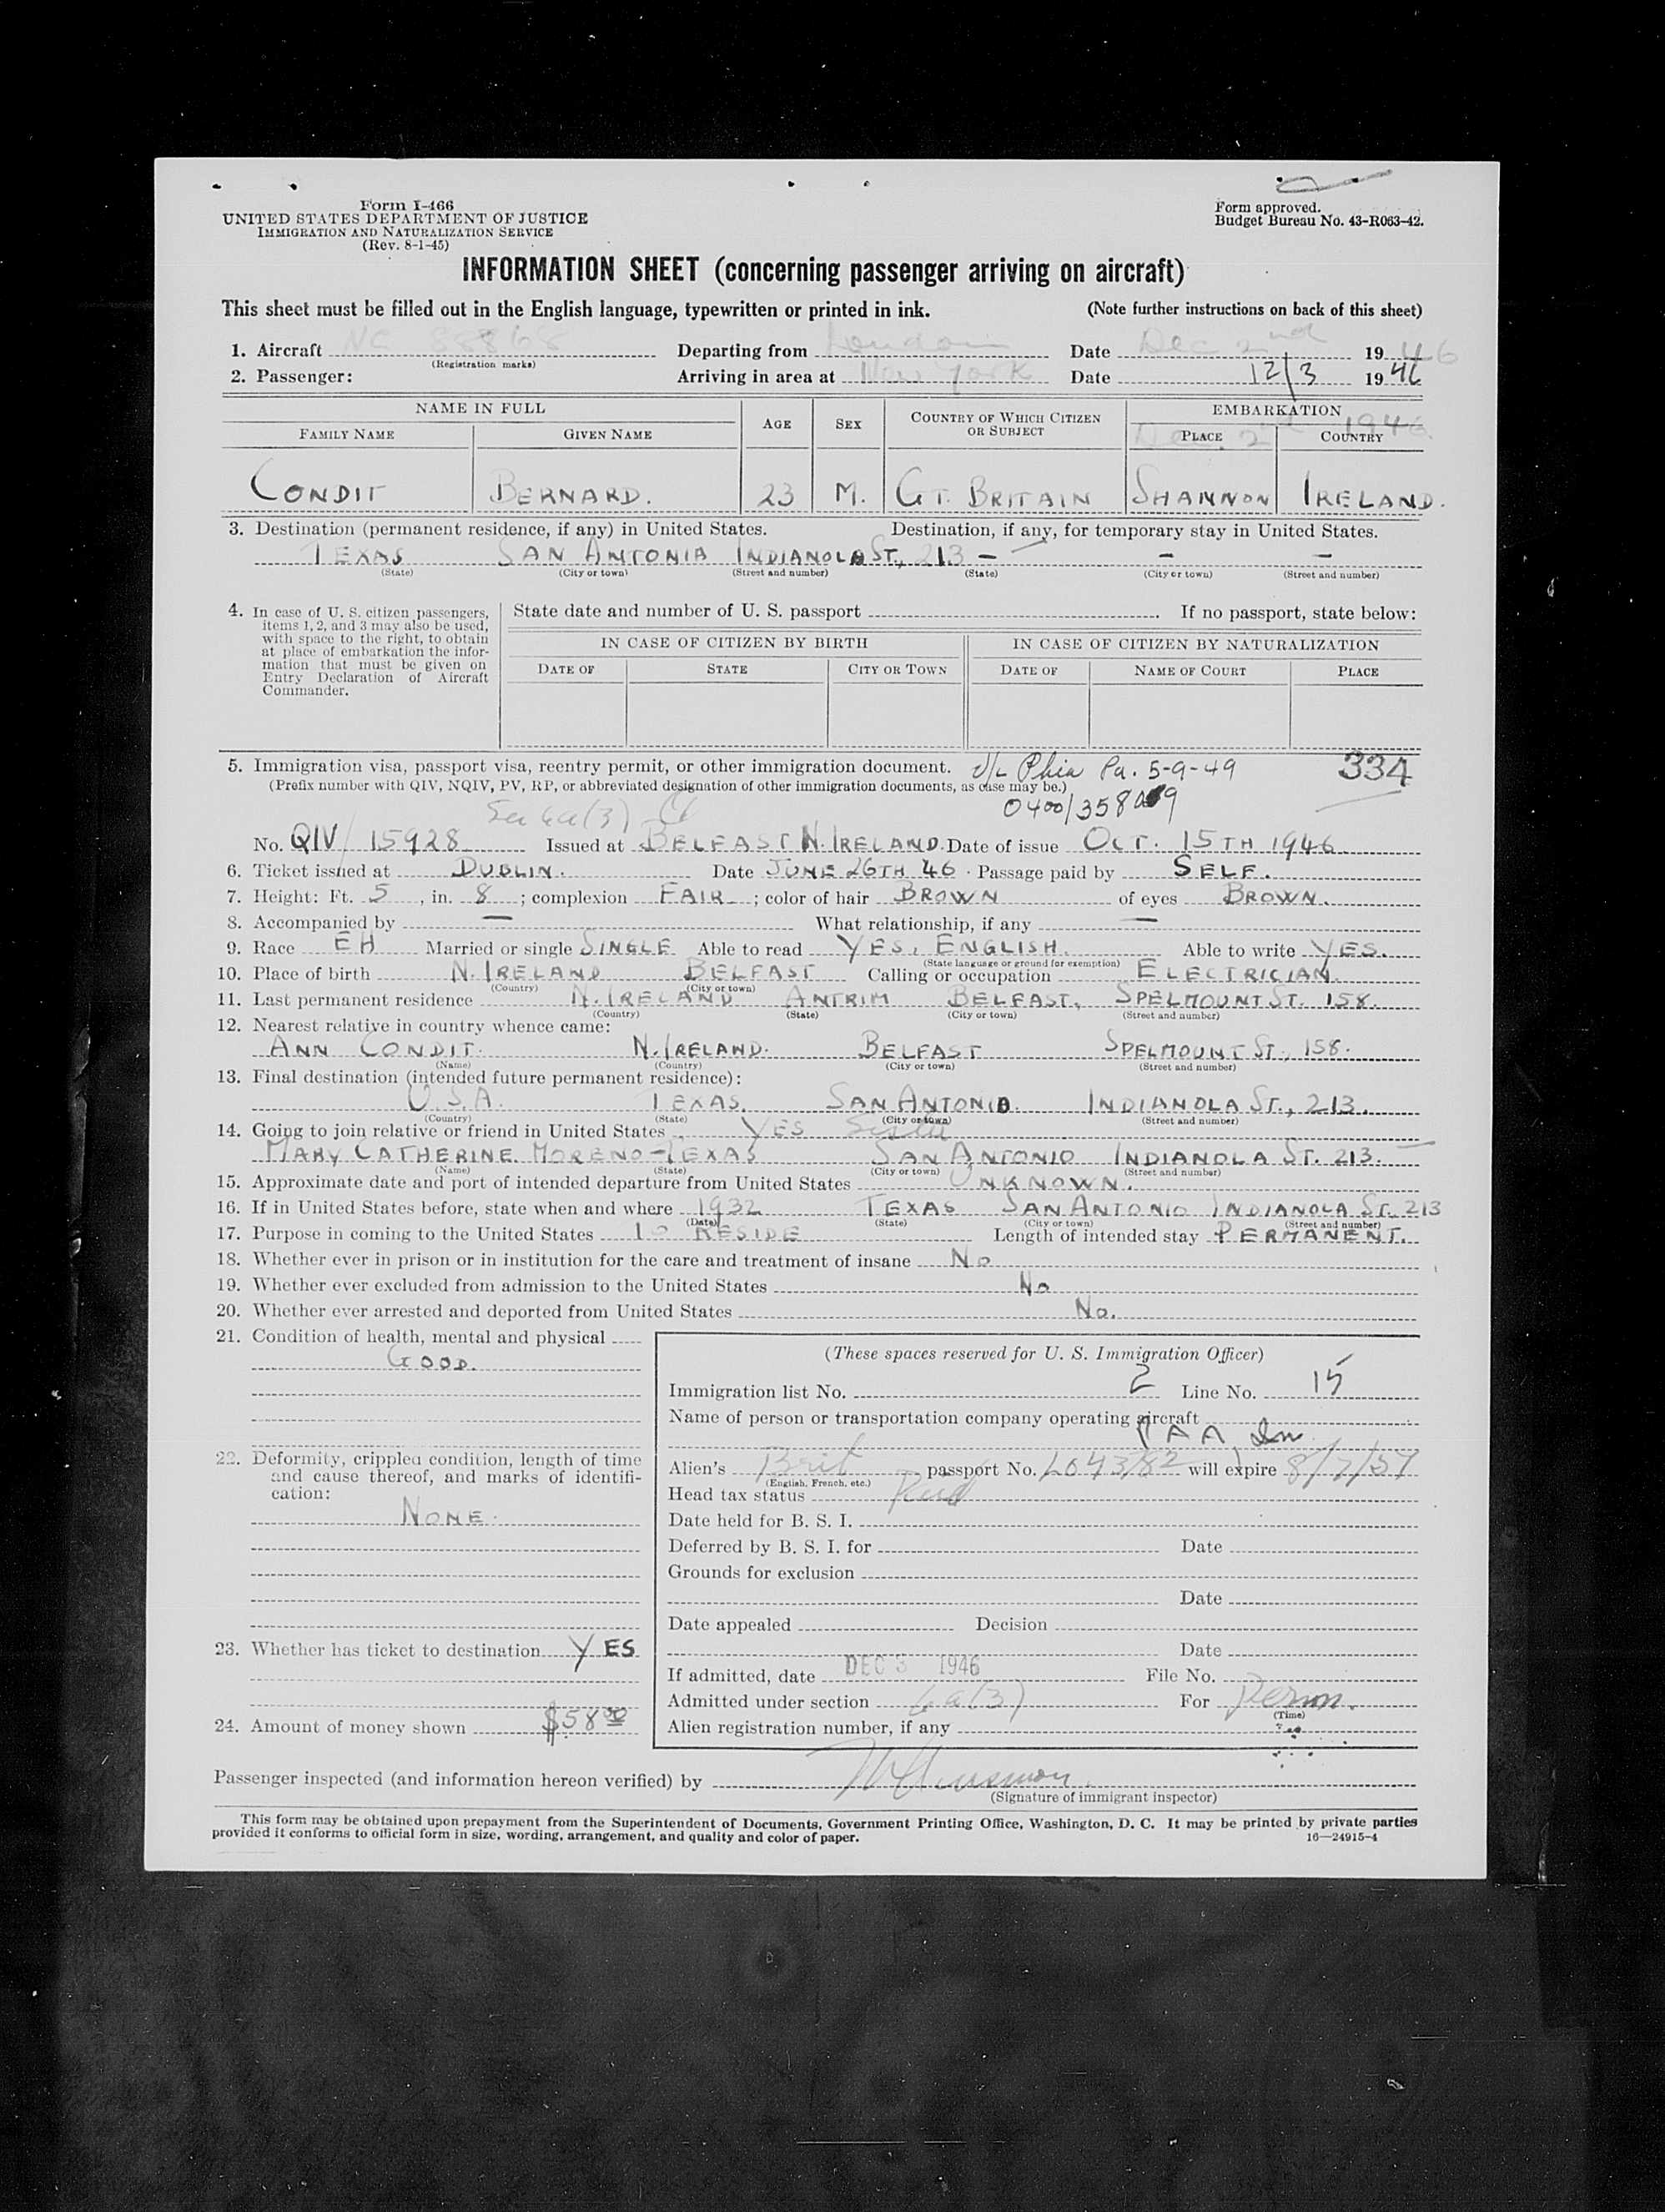 Form I-466
UNITED STATES DEPARTMENT OF JUSTICE
IMMIGRATION AND NATURALIZATION SERVICE
(Rev. 8-1-45)
Form approved.
Budget Bureau No. 43-R063-42.
INFORMATION SHEET (concerning passenger arriving on aircraft)
This sheet must be filled out in the English language, typewritten or printed in ink. (Note further instructions on back of this sheet)
1. Aircraft NC 88868 Departing from London Date Dec 2nd 1946
(Registration marks)
2. Passenger: Arriving in area at New York Date 12/3 1946
NAME IN FULL AGE SEX COUNTRY OF WHICH CITIZEN OR SUBJECT EMBARKATION
FAMILY NAME GIVEN NAME PLACE COUNTRY
Dec. 2 1946
CONDIT BERNARD. 23 M. GT. BRITAIN SHANNON IRELAND.
3. Destination (permanent residence, if any) in United States. Destination, if any, for temporary stay in United States.
TEXAS SAN ANTONIA INDIANOLA ST., 213 - - -
(State) (City or town) (Street and number) (State) (City or town) (Street and number)
4. In case of U. S. citizen passengers, items 1, 2, and 3 may also be used, with space to the right, to obtain at place of embarkation the information that must be given on Entry Declaration of Aircraft Commander.
State date and number of U. S. passport If no passport, state below:
IN CASE OF CITIZEN BY BIRTH IN CASE OF CITIZEN BY NATURALIZATION
DATE OF STATE CITY OR TOWN DATE OF NAME OF COURT PLACE
5. Immigration visa, passport visa, reentry permit, or other immigration document. V/L Phia Pa. 5-9-49 334
(Prefix number with QIV, NQIV, PV, RP, or abbreviated designation of other immigration documents, as case may be.)
0400/358
No. QIV 15928 Issued at BELFAST N. IRELAND. Date of issue OCT. 15TH 1946
6. Ticket issued at DUBLIN. Date JUNE 26TH 46 Passage paid by SELF.
7. Height: Ft. 5, in. 8; complexion FAIR; color of hair BROWN of eyes BROWN.
8. Accompanied by — What relationship, if any —
9. Race EH Married or single SINGLE Able to read YES, ENGLISH. Able to write YES.
(State language or ground for exemption)
10. Place of birth N. IRELAND BELFAST Calling or occupation ELECTRICIAN.
(Country) (City or town)
11. Last permanent residence N. IRELAND ANTRIM BELFAST, SPELMOUNT ST. 158.
(Country) (State) (City or town) (Street and number)
12. Nearest relative in country whence came:
ANN CONDIT. N. IRELAND. BELFAST SPELMOUNT ST., 158.
(Name) (Country) (City or town) (Street and number)
13. Final destination (intended future permanent residence):
U.S.A. TEXAS. SAN ANTONIO. INDIANOLA ST., 213.
(Country) (State) (City or town) (Street and number)
14. Going to join relative or friend in United States YES Sister
MARY CATHERINE MORENO - TEXAS SAN ANTONIO INDIANOLA ST. 213.
(Name) (State) (City or town) (Street and number)
15. Approximate date and port of intended departure from United States UNKNOWN.
16. If in United States before, state when and where 1932 TEXAS SAN ANTONIO INDIANOLA ST. 213
(Date) (State) (City or town) (Street and number)
17. Purpose in coming to the United States TO RESIDE Length of intended stay PERMANENT.
18. Whether ever in prison or in institution for the care and treatment of insane NO
19. Whether ever excluded from admission to the United States NO
20. Whether ever arrested and deported from United States NO.
21. Condition of health, mental and physical
GOOD.
22. Deformity, crippled condition, length of time and cause thereof, and marks of identification:
NONE.
23. Whether has ticket to destination YES
24. Amount of money shown $58 00
(These spaces reserved for U. S. Immigration Officer)
Immigration list No. 2 Line No. 15
Name of person or transportation company operating aircraft
PAA, Inc
Alien's Brit passport No. L043782 will expire 8/7/57
(English, French, etc.)
Head tax status Paid
Date held for B. S. I.
Deferred by B. S. I. for Date
Grounds for exclusion
Date
Date appealed Decision
Date
If admitted, date DEC 3 1946 File No.
Admitted under section 6a(3) For Perm.
(Time)
Alien registration number, if any
Passenger inspected (and information hereon verified) by
(Signature of immigrant inspector)
This form may be obtained upon prepayment from the Superintendent of Documents, Government Printing Office, Washington, D. C. It may be printed by private parties
provided it conforms to official form in size, wording, arrangement, and quality and color of paper. 16—24915-4